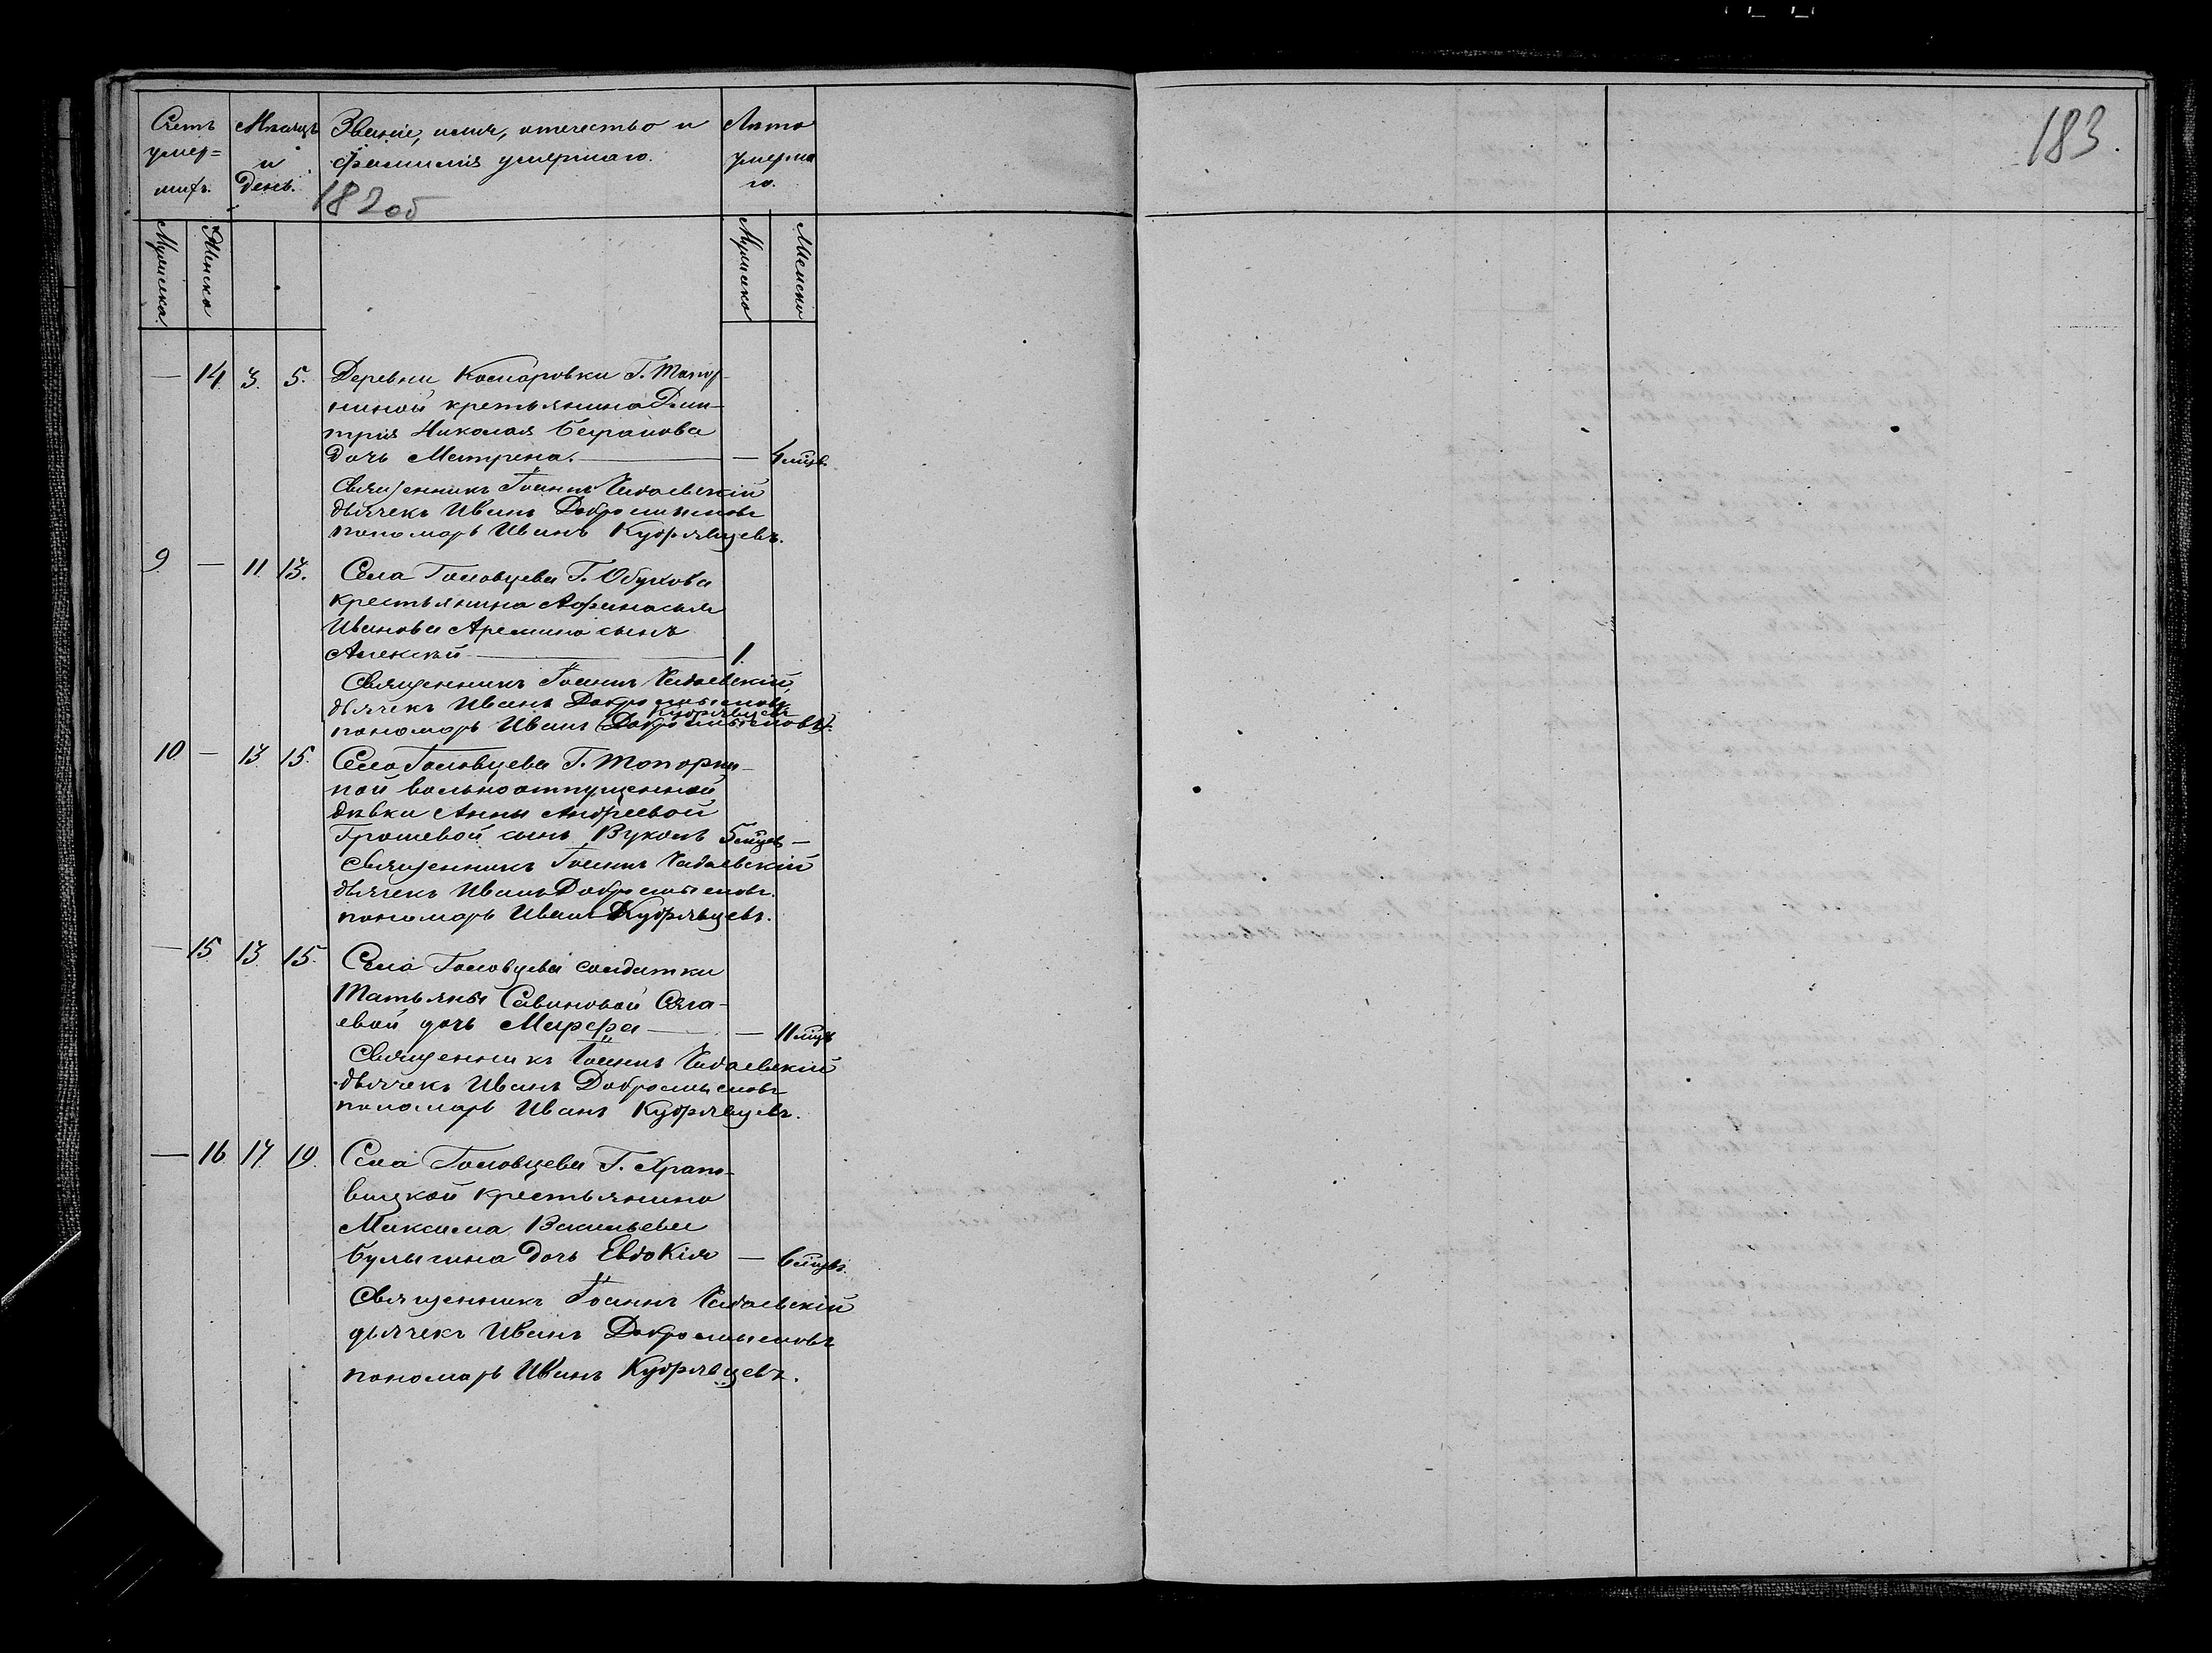 183.
Счетъ умер=шихъ.
Мѣсяцъ и День.
Званіе, имя, отчество и
фамилія умершаго.
Лѣта умерша го.
182 об
Мужеска.
Женска
Мужеска
Женско
— 14 3. 5. Деревни Комаровки Г. Топор-
ниной крестьянина Дми-
трія Николая
дочь Матрена. — 4 мцсв.
Священникъ Іоаннъ Чадаевскій
дьячекъ Иванъ Добросмысловъ
пономарь Иванъ Кудрявцевъ.
9. — 11. 13. Села Головцева Г. Обухова
крестьянина Афанасья
Иванова сынъ
Алексѣй — 1.
Священникъ Іоаннъ Чадаевскій,
дьячекъ Иванъ Добросмысловъ
Кудрявцевъ
пономарь Иванъ (Добросмысловъ).
10 — 13. 15. Села Головцева Г. Топорни-
ной вольноотпущенной
дѣвки Анны Андреевой
Грошевой сынъ Вуколъ 5 мцсв —
Священникъ Іоаннъ Чадаевскій
дьячекъ Иванъ Добросмысловъ.
пономарь Иванъ Кудрявцевъ.
— 15. 13. 15. Села Головцева солдатки
Татьяны Савиновой
евой дочь Марфа — — 11 мцсв
Священникъ Іоаннъ Чадаевскій
дьячекъ Иванъ Добросмысловъ
пономарь Иванъ Кудрявцевъ.
— 16. 17. 19. Села Головцева Г. Храпо-
вицкой крестьянина
Максима Васильева
Булыгина дочь Евдокія — 6 мцсв.
Священникъ Іоаннъ Чадаевскій
дьячекъ Иванъ Добросмысловъ
пономарь Иванъ Кудрявцевъ.